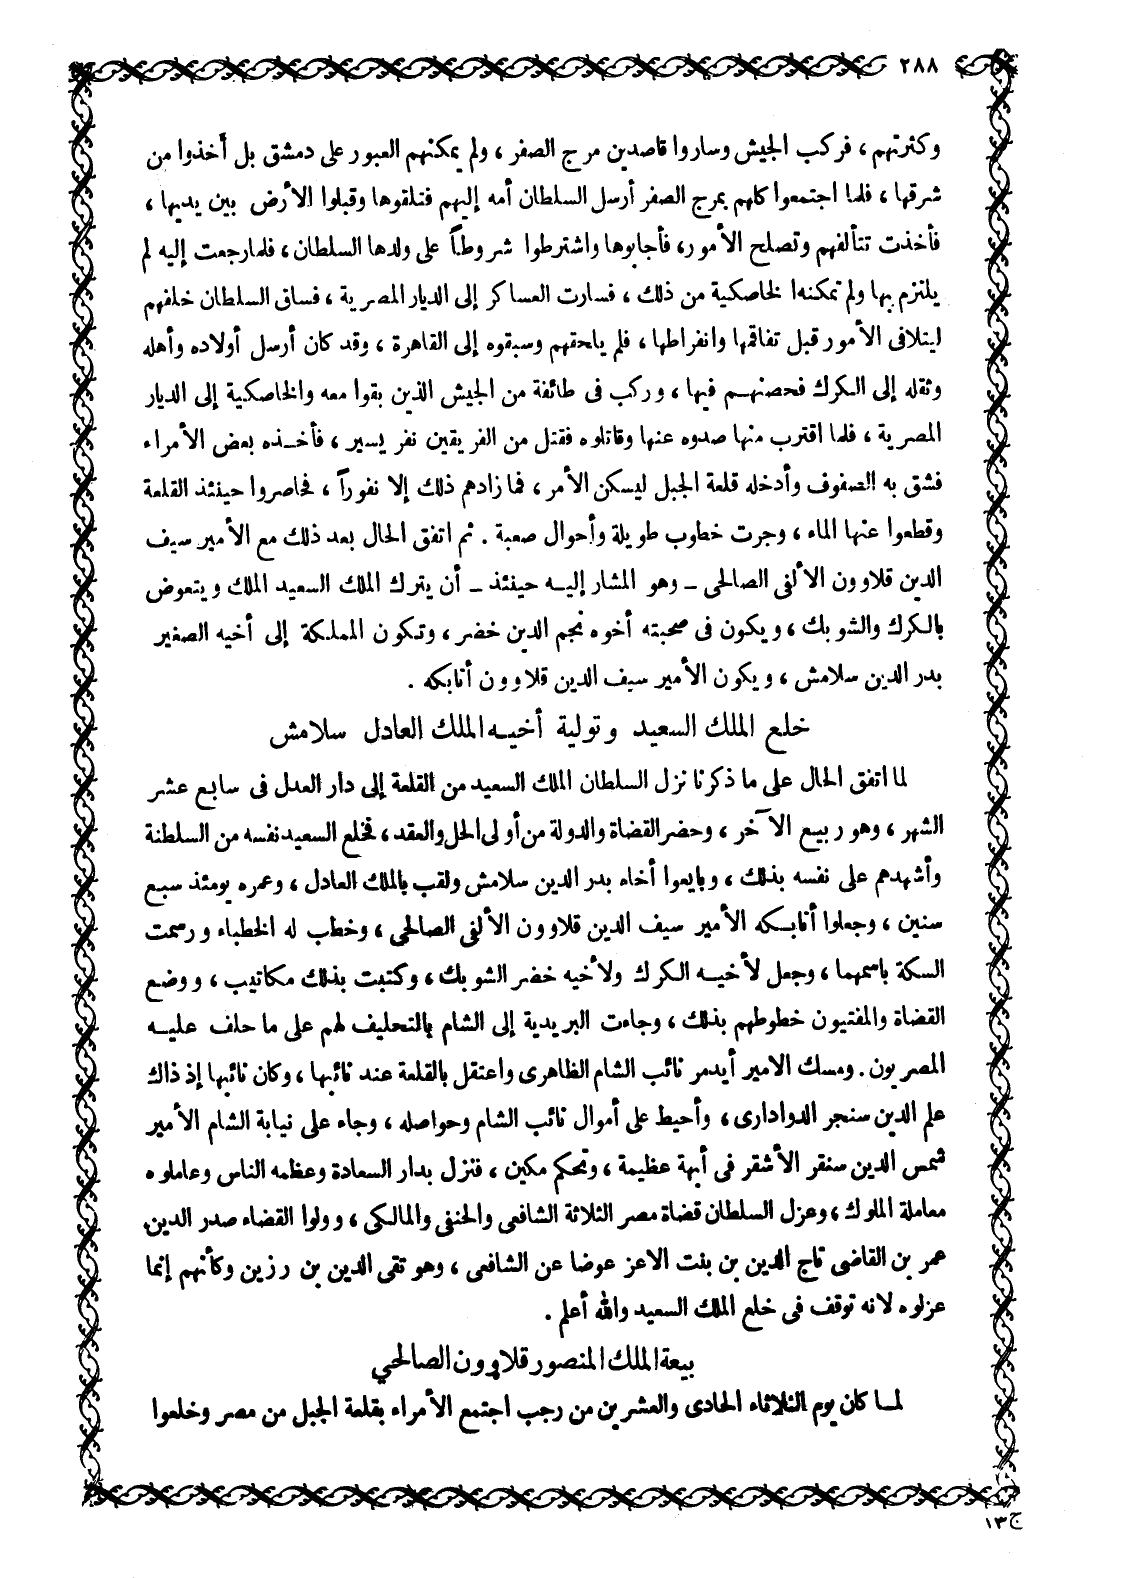 ٢٨٨
وكثرتهم ، فركب الجيش وساروا قاصدين مرج الصفر ، ولم يمكنهم العبور على دمشق بل أخذوا من
شرقها ، فلما اجتمعوا كلهم بمرج الصفر أرسل السلطان أمه إليهم فتلقوها وقبلوا الأرض بين يديها ،
فأخذت تتألفهم وتصلح الأمور، فأجابوها واشترطوا شروطاً على ولدها السلطان ، فلما رجعت إليه لم
يلتزم بها ولم تمكنه الخاصكية من ذلك ، فسارت العساكر إلى الديار المصرية ، فساق السلطان خلفهم
ليتلافى الأمور قبل تفاقمها وانفراطها ، فلم يلحقهم وسبقوه إلى القاهرة ، وقد كان أرسل أولاده وأهله
وثقله إلى الكرك فحصنهم فيها ، وركب فى طائفة من الجيش الذين بقوا معه والخاصكية إلى الديار
المصرية ، فلما اقترب منها صدوه عنها وقاتلوه فقتل من الفريقين نفر يسير ، فأخذه بعض الأمراء
فشق به الصفوف وأدخله قلعة الجبل ليسكن الأمر ، فما زادهم ذلك إلا نفوراً ، فحاصروا حينئذ القلعة
وقطعوا عنها الماء ، وجرت خطوب طويلة وأحوال صعبة . ثم اتفق الحال بعد ذلك مع الأمير سيف
الدين قلاوون الألفى الصالحى ـ وهو المشار إليه حينئذ ـ أن يترك الملك السعيد الملك ويتعوض
بالكرك والشوبك ، ويكون فى صحبته أخوه نجم الدين خضر ، وتكون المملكة إلى أخيه الصغير
بدر الدين سلامش ، ويكون الأمير سيف الدين قلاوون أتابكه .
خلع الملك السعيد وتولية أخيه الملك العادل سلامش
لما اتفق الحال على ما ذكرنا نزل السلطان الملك السعيد من القلعة إلى دار العدل فى سابع عشر
الشهر ، وهو ربيع الآخر ، وحضر القضاة والدولة من أولى الحل والعقد ، فخلع السعيد نفسه من السلطنة
وأشهدهم على نفسه بذلك ، وبايعوا أخاه بدر الدين سلامش ولقب بالملك العادل ، وعمره يومئذ سبع
سنين ، وجعلوا أتابكه الأمير سيف الدين قلاوون الألفى الصالحى ، وخطب له الخطباء ورسمت
السكة باسمهما ، وجعل لأخيه الكرك ولأخيه خضر الشوبك ، وكتبت بذلك مكاتيب ، ووضع
القضاة والمفتيون خطوطهم بذلك ، وجاءت البريدية إلى الشام بالتحليف لهم على ما حلف عليه
المصريون . ومسك الامير أيدمر نائب الشام الظاهرى واعتقل بالقلعة عند نائبها ، وكان نائبها إذ ذاك
علم الدين سنجر الدوادارى ، وأحيط على أموال نائب الشام وحواصله ، وجاء على نيابة الشام الأمير
شمس الدين سنقر الأشقر فى أبهة عظيمة ، وتحكم مكين ، فنزل بدار السعادة وعظمه الناس وعاملوه
معاملة الملوك ، وعزل السلطان قضاة مصر الثلاثة الشافعى والحنفى والمالكى ، وولوا القضاء صدر الدين
عمر بن القاضى تاج الدين بن بنت الاعز عوضا عن الشافعى ، وهو تقى الدين بن رزين وكأنهم إنما
عزلوه لانه توقف فى خلع الملك السعيد والله أعلم .
بيعة الملك المنصور قلاوون الصالحي
لما كان يوم الثلاثاء الحادى والعشرين من رجب اجتمع الأمراء بقلعة الجبل من مصر وخلعوا
ج١٣